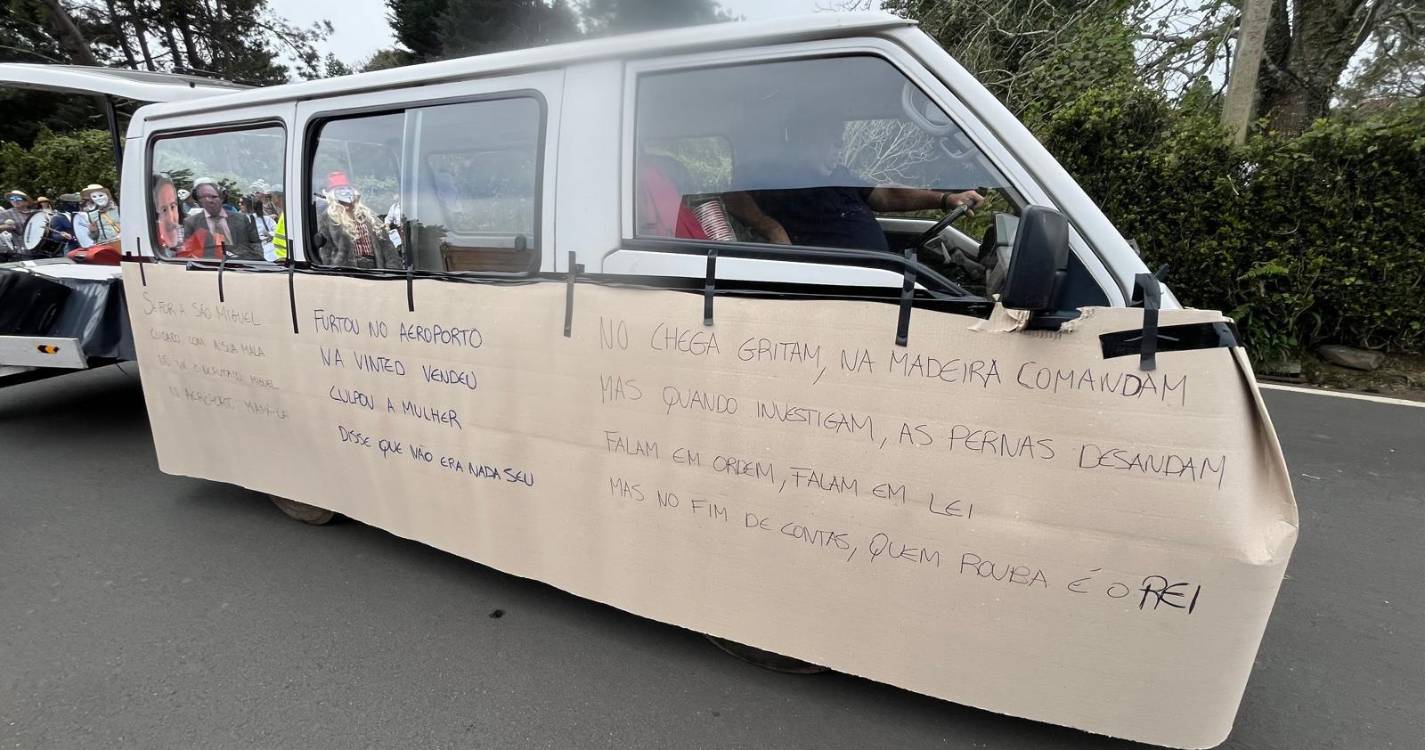 SE FOR A SÃO MIGUEL
CUIDADO COM A SUA MALA
MIGUEL
FURTOU NO AEROPORTO
NA VINTED VENDEU
CULPOU A MULHER
DISSE QUE NÃO ERA NADA SEU
NO CHEGA GRITAM, NA MADEIRA COMANDAM
MAS QUANDO INVESTIGAM, AS PERNAS DESANDAM
FALAM EM ORDEM, FALAM EM LEI
MAS NO FIM DE CONTAS, QUEM ROUBA É O REI